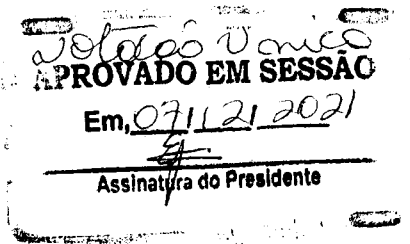 Votação Única
APROVADO EM SESSÃO
Em, 07/12/2021
Assinatura do Presidente